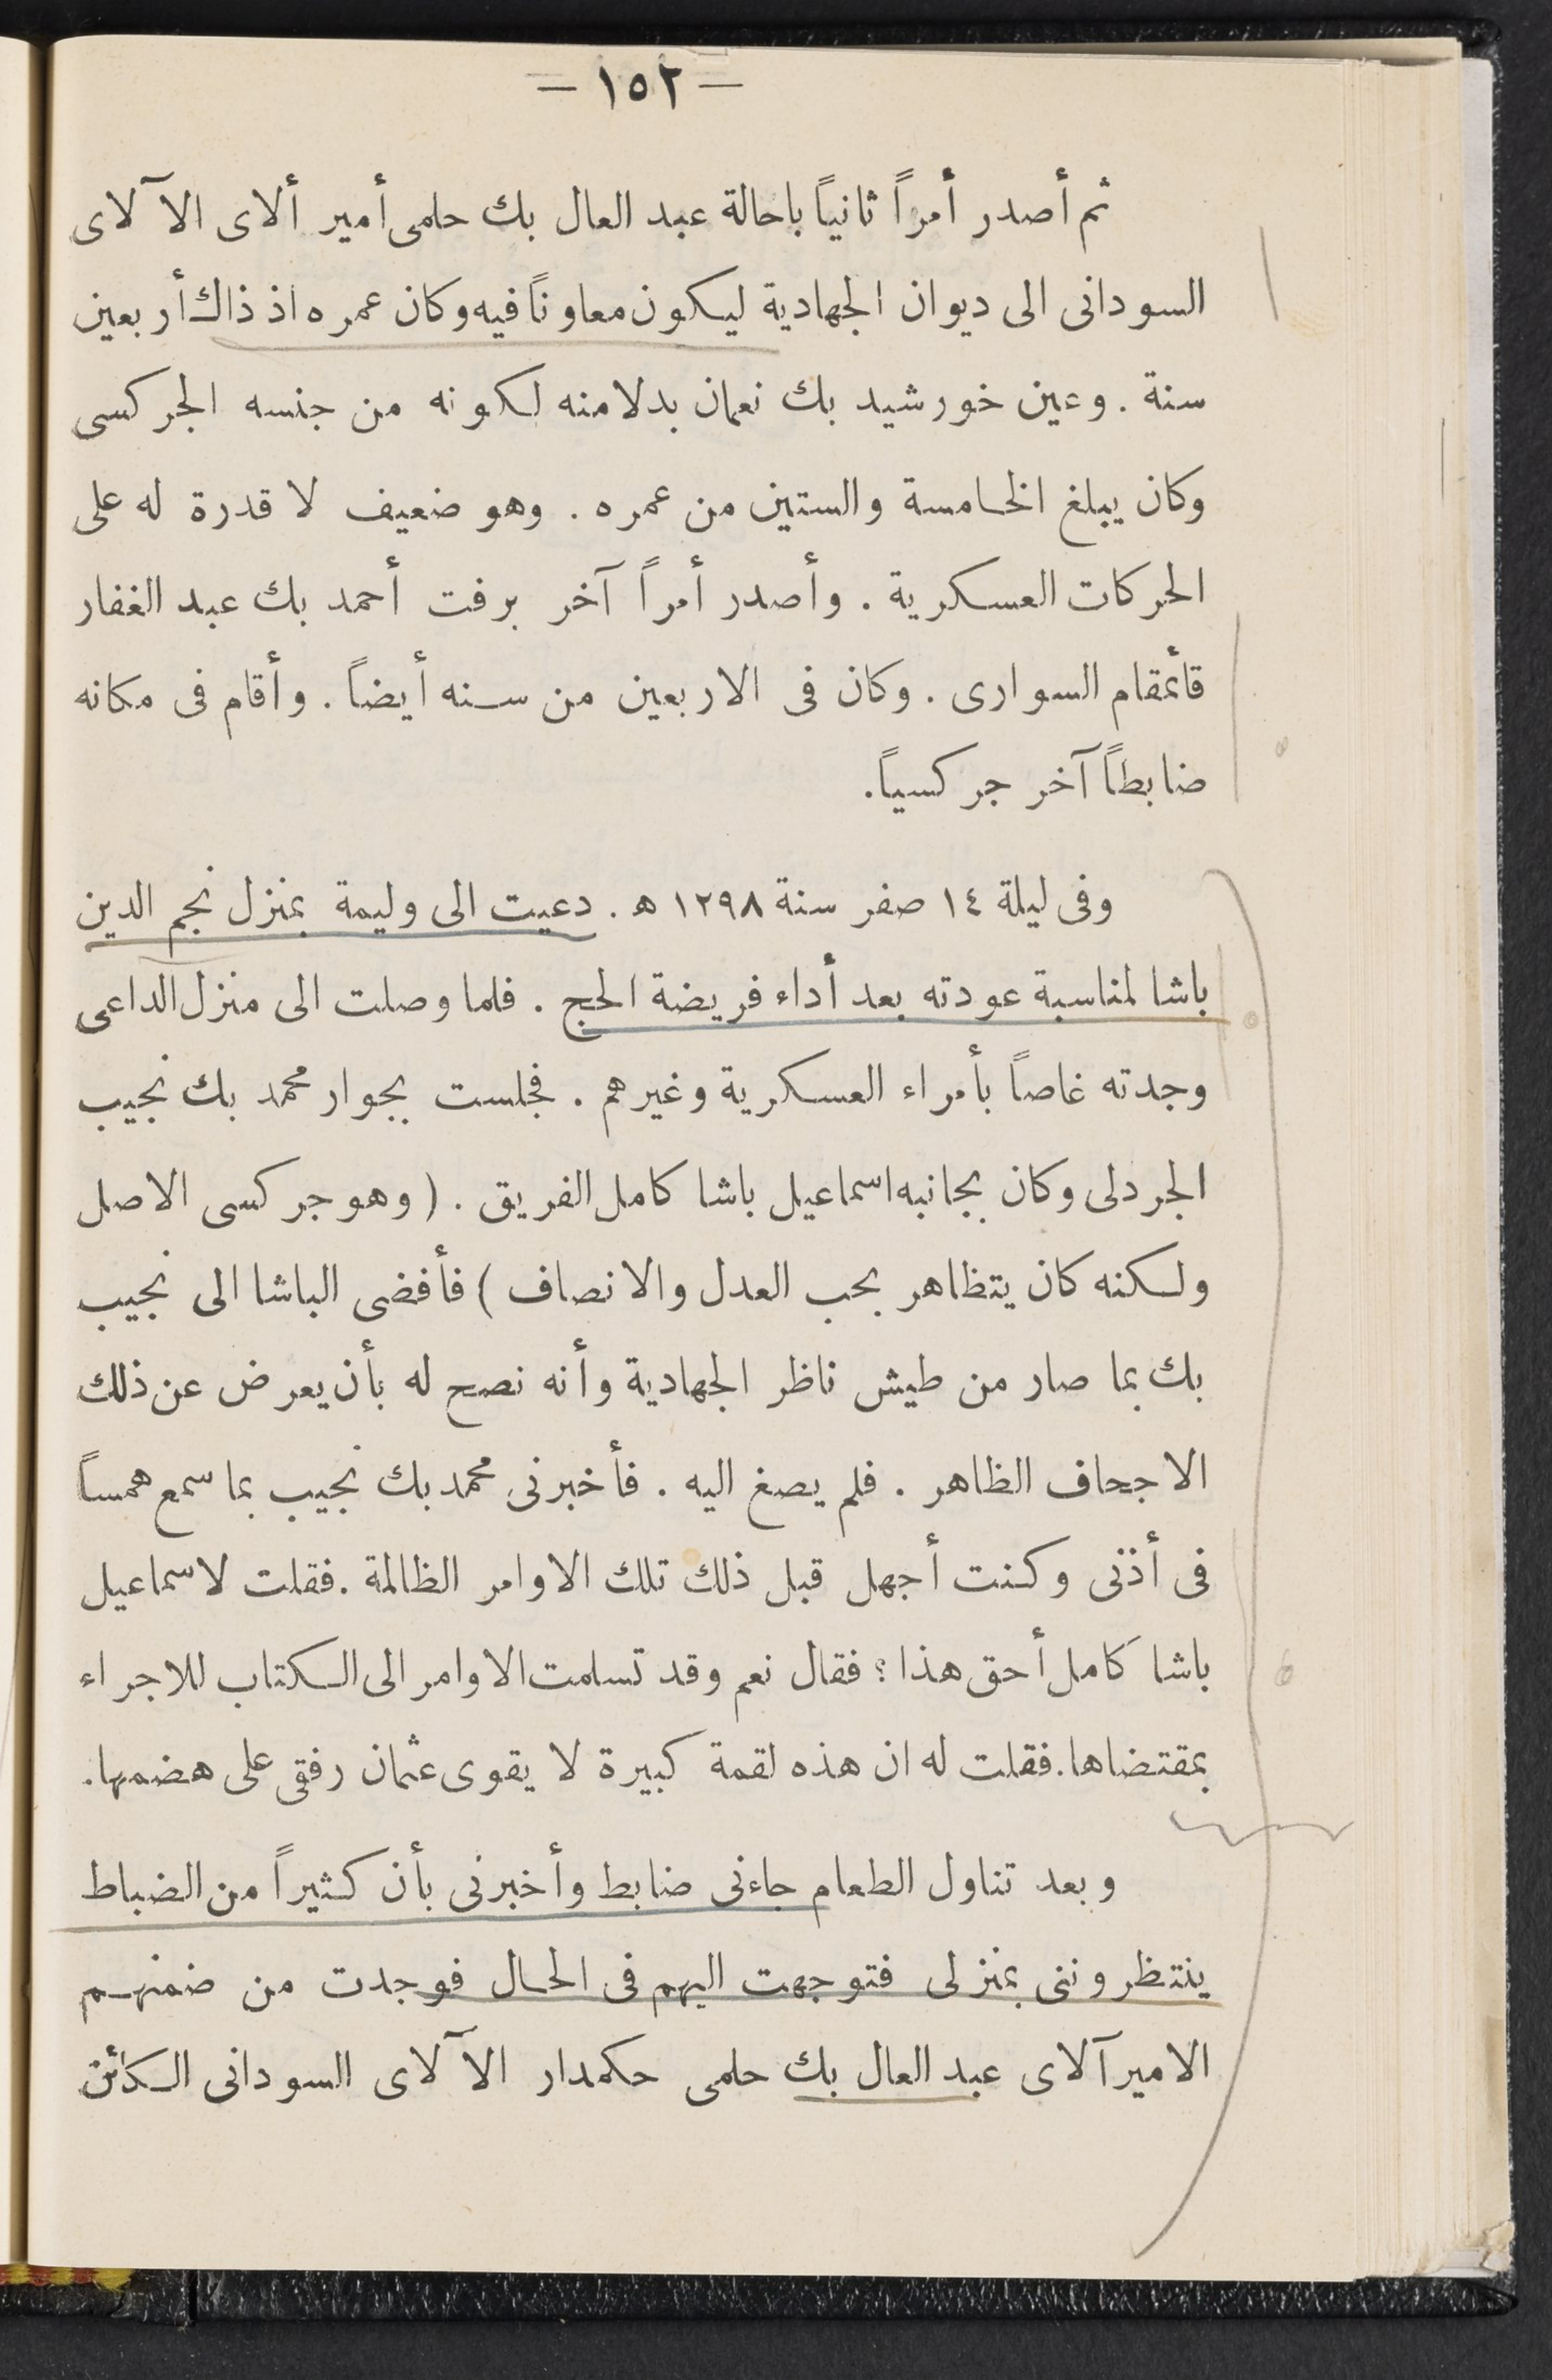 — ١٥٢ —
ثم أصدر أمراً ثانياً باحالة عبد العال بك حلمى أمير ألاى الآلاى
السودانى الى ديوان الجهادية ليكون معاوناً فيه وكان عمره اذ ذاك أربعين
سنة . وعين خورشيد بك نعمان بدلا منه لكونه من جنسه الجركسى
وكان يبلغ الخامسة والستين من عمره . وهو ضعيف لا قدرة له على
الحركات العسكرية . وأصدر أمراً آخر برفت أحمد بك عبد الغفار
قائمقام السوارى . وكان فى الاربعين من سنه أيضاً . وأقام فى مكانه
ضابطاً آخر جركسياً.
وفى ليلة ١٤ صفر سنة ١٢٩٨ ه . دعيت الى وليمة بمنزل نجم الدين
باشا لمناسبة عودته بعد أداء فريضة الحج . فلما وصلت الى منزل الداعى
وجدته غاصاً بأمراء العسكرية وغيرهم . فجلست بجوار محمد بك نجيب
الجردلى وكان بجانبه اسماعيل باشا كامل الفريق . ( وهو جركسى الاصل
ولكنه كان يتظاهر بحب العدل والانصاف ) فأفضى الباشا الى نجيب
بك بما صار من طيش ناظر الجهادية وأنه نصح له بأن يعرض عن ذلك
الاجحاف الظاهر . فلم يصغ اليه . فأخبرنى محمد بك نجيب بما سمع همساً
فى أذنى وكنت أجهل قبل ذلك تلك الاوامر الظالمة .فقلت لاسماعيل
باشا كامل أحق هذا ؟ فقال نعم وقد تسلمت الاوامر الى الكتاب للاجراء
بمقتضاها. فقلت له ان هذه لقمة كبيرة لا يقوى عثمان رفقى على هضمها.
وبعد تناول الطعام جاءنى ضابط وأخبرنى بأن كثيراً من الضباط
ينتظروننى بمنزلى فتوجهت اليهم فى الحال فوجدت من ضمنهم
الاميرآلاى عبد العال بك حلمى حكمدار الآلاى السودانى الكائن